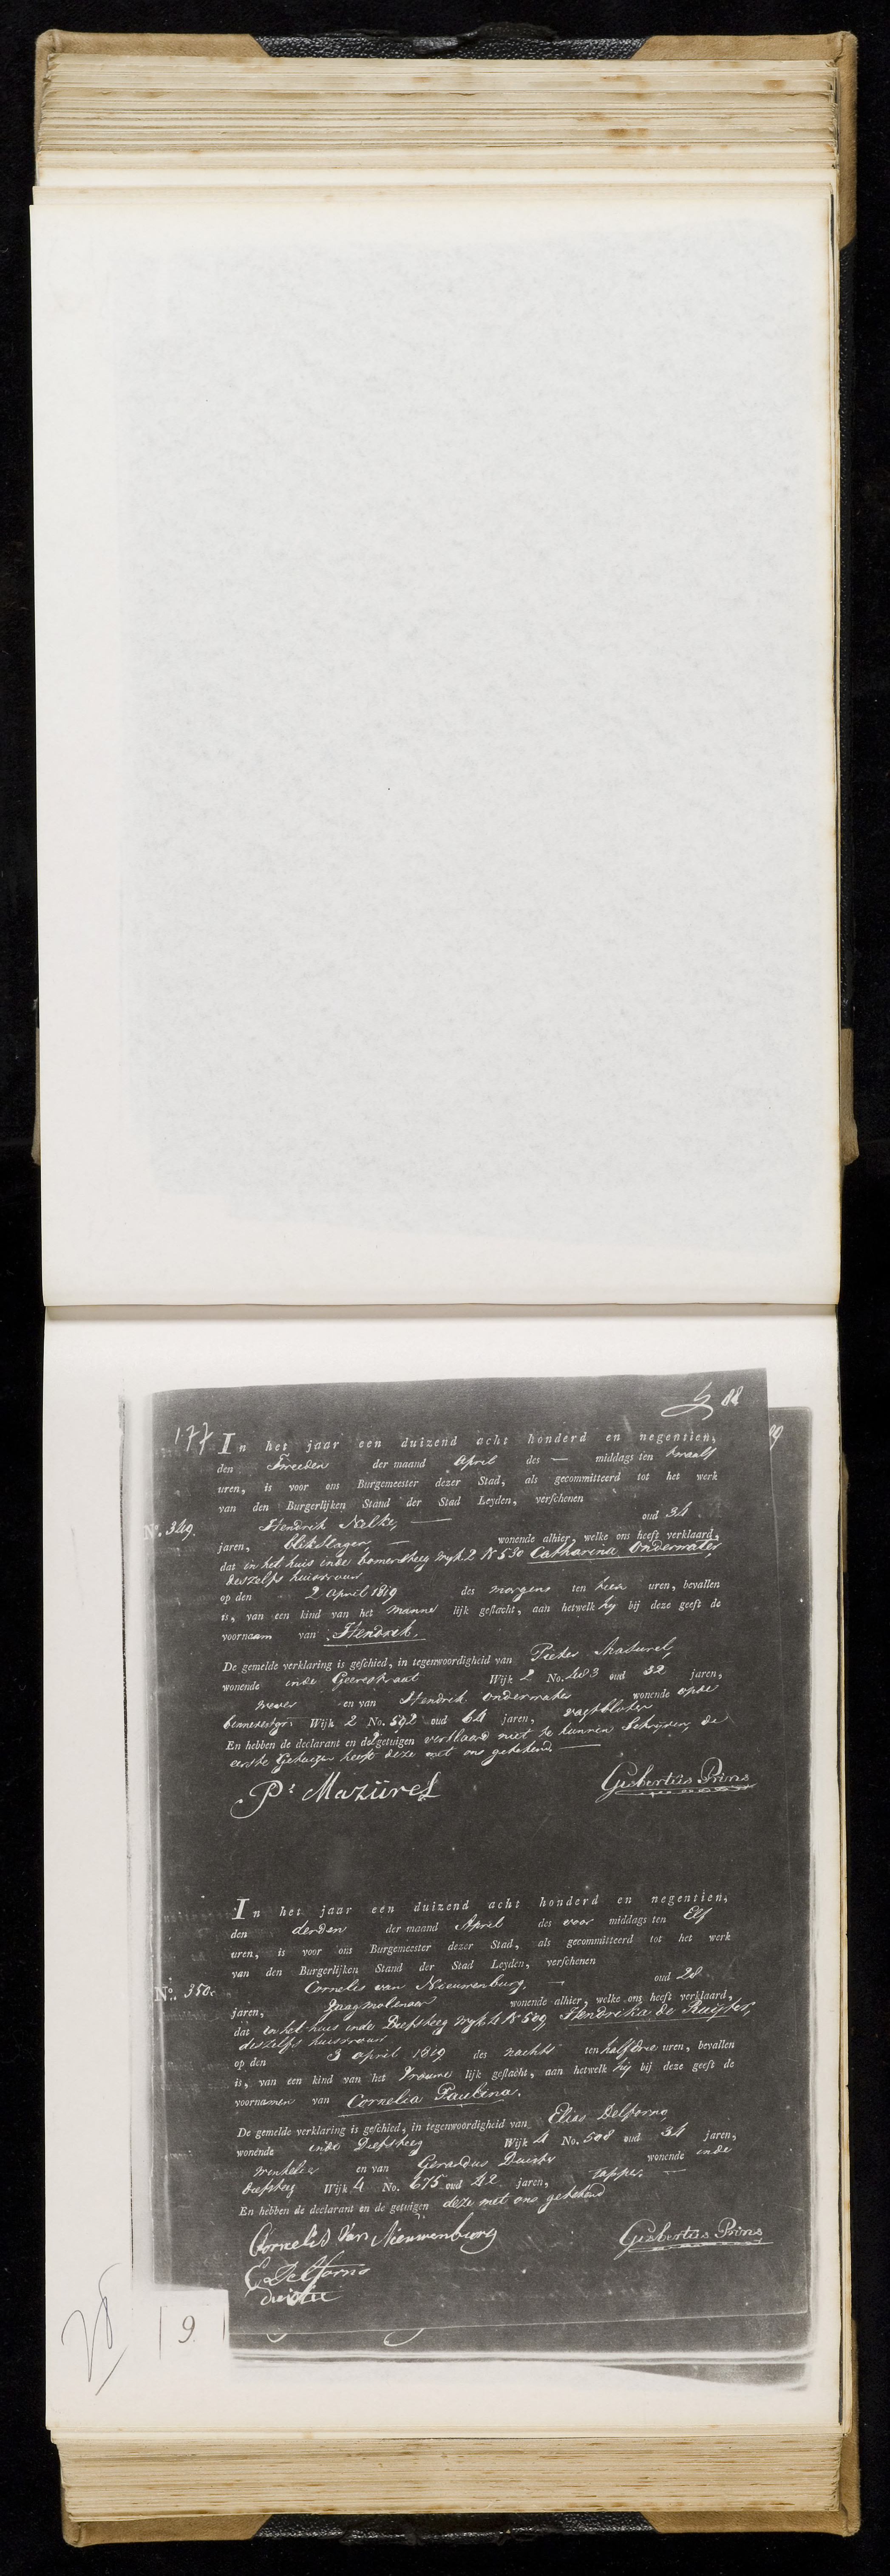 88
177
In het jaar een duizend acht honderd en negentien,
den Tweeden der maand April des — middags ten twaalf
uren, is voor ons Burgemeester dezer Stad, als gecommitteerd tot het werk
van den Burgerlijken Stand der Stad Leyden, verschenen
No. 349.
Hendrik Nelke, — oud 34
jaren, blikslager, — wonende alhier, welke ons heeft verklaard,
dat in het huis inde wijk 2 N 530 Catharina Onderwater,
deszelfs huisvrouw
op den 2 April 1819 des morgens ten uren, bevallen
is, van een kind van het manne lijk geslacht, aan hetwelk hij bij deze geeft de
voornaam van Hendrik.
De gemelde verklaring is geschied, in tegenwoordigheid van Pieter Masurel,
wonende inde Geerestraat Wijk 2 No. 483 oud 32 jaren,
wever en van Hendrik Onderwater wonende opde
binnevestgr. Wijk 2 No. 592 oud 64 jaren,
En hebben de declarant en de 2e getuigen verklaard niet te kunnen Schrijven, de
eerste Getuigen heeft deze met ons getekend. —
Pr Mazürel Gisbertus Prins
In het jaar een duizend acht honderd en negentien,
den derden der maand April des voor middags ten Elf
uren, is voor ons Burgemeester dezer Stad, als gecommitteerd tot het werk
van den Burgerlijken Stand der Stad Leyden, verschenen
No. 350.
Cornelis van Nieuwenburg, — oud 28
jaren, Zaagmolenaar wonende alhier, welke ons heeft verklaard,
dat in het huis inde Diefsteeg wijk 4 N 509 Hendrika de Ruijter,
deszelfs huisvrouw
op den 3 april 1819 des nachts ten half drie uren, bevallen
is, van een kind van het Vrouwe lijk geslacht, aan hetwelk hij bij deze geeft de
voornamen van Cornelia Paulina.
De gemelde verklaring is geschied, in tegenwoordigheid van Elias Delforno,
wonende inde Diefsteeg Wijk 4 No. 508 oud 34 jaren,
winkelier en van Gerardus Duister wonende inde
diefsteeg Wijk 4 No. 675 oud 42 jaren, tapper. —
En hebben de declarant en de getuigen deze met ons getekend
Cornelis Van Nieuwenburg Gisbertus Prins
E Delforno
duister
9.